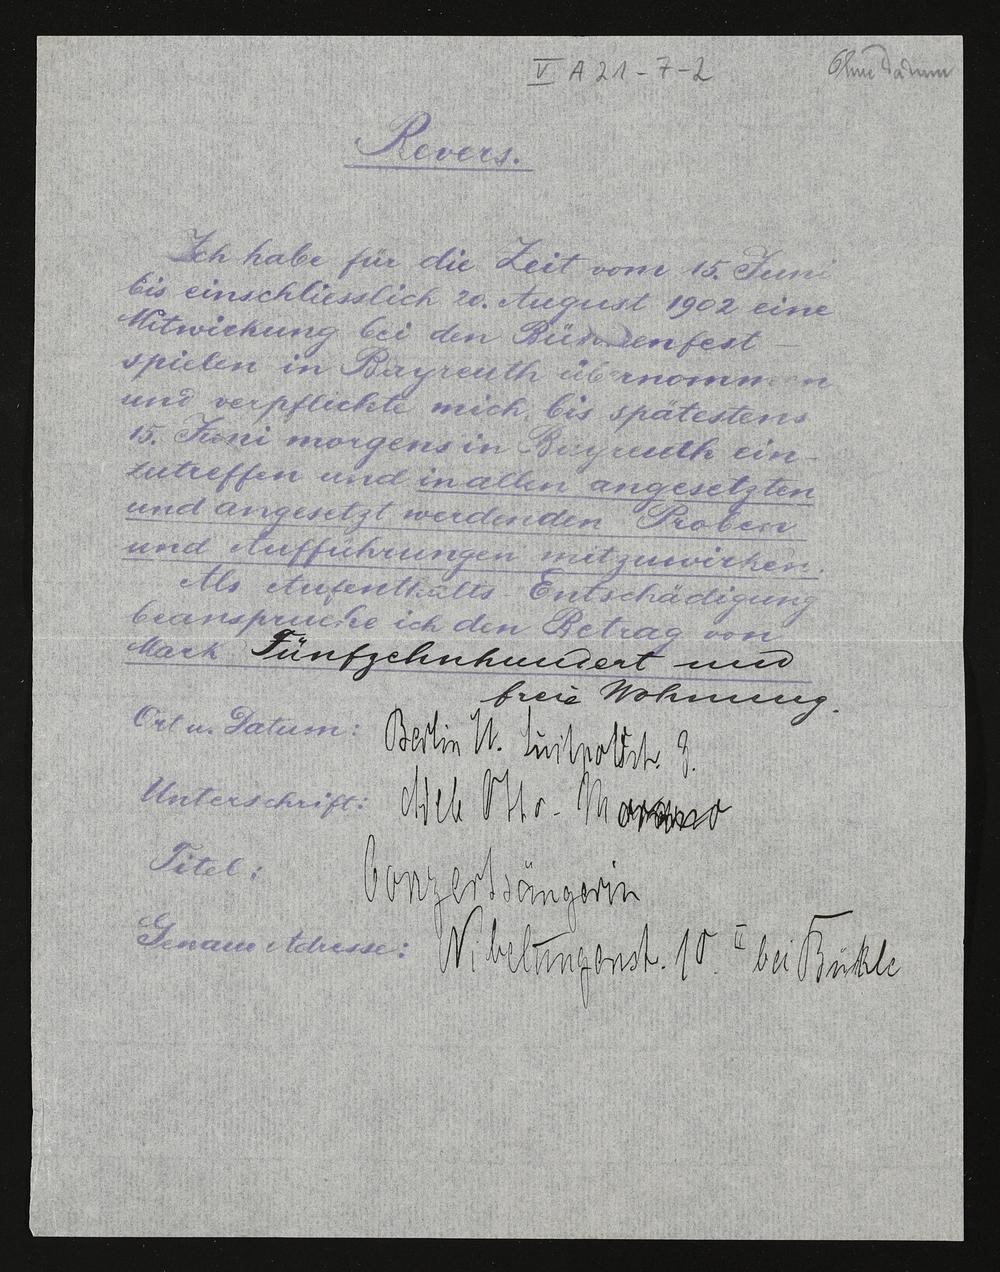 V A 21-7-2
Ohne Datum
Revers.
Ich habe für die Zeit vom 15. Juni
bis einschliesslich 20. August 1902 eine
Mitwirkung bei den Bühnenfest-
spielen in Bayreuth übernommen
und verpflichte mich, bis spätestens
15. Juni morgens in Bayreuth ein-
zutreffen und in allen angesetzten
und angesetzt werdenden Proben
und Aufführungen mitzuwirken.
Als Aufenthalts-Entschädigung
beanspruche ich den Betrag von
Mark Fünfzehnhundert und
freie Wohnung.
Ort u. Datum: Berlin W. Luitpoldstr.
Unterschrift: Adele Otto-Morano
Titel: Conzertsängerin
Genaue Adresse: Nibelungenst. 10. II bei